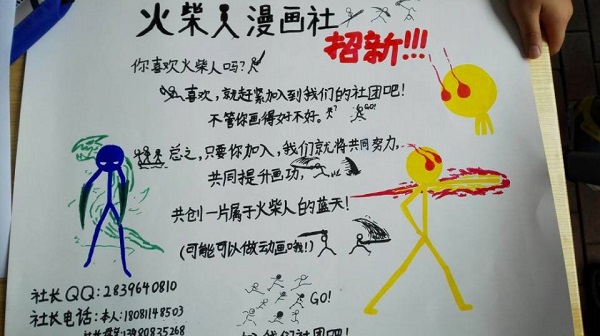 火柴人漫画社
招新!!!
你喜欢火柴人吗?
喜欢,就赶紧加入到我们的社团吧!
不管你画得好不好。 GO!
总之,只要你加入,我们就将共同努力。
共同提升画功,
共创一片属于火柴人的蓝天!
(可能可以做动画哦!)
社长QQ:2839640810
社长电话:本人:18081148503
GO!
我们社团吧!